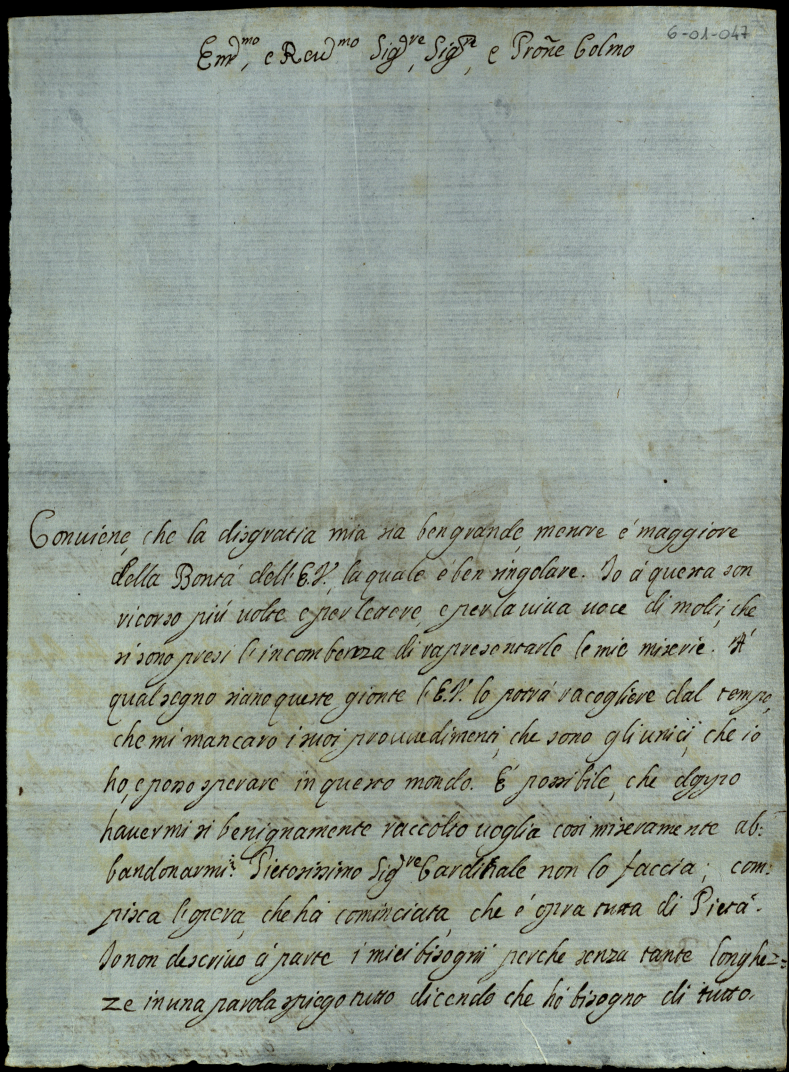 6-01-047
Em.mo, e Reu.mo Sig.re, Sig.re, e Prõne Colmo
Conuiene, che la disgratia mia sia ben grande, mentre é maggiore
della Bontá dell'E.V., la quale é ben singolare. Io á questa son
ricorso piú uolte e per lettere, e per la uiua uoce di molti, che
si sono presi l'incombenza di rapresentarle le mie miserie. Á
qual segno siano queste gionte l'E.V. lo potrá racogliere dal tempo,
che mi mancaro i suoi prouuedimenti, che sono gli unici, che io
ho, e posso sperare in questo mondo. É possibile, che dopo
hauermi sí benignamente raccolto uoglia cosí miseramente ab:
bandonarmi? Pietosissimo Sig.re Cardinale non lo faccia; com:
pisca l'opera, che há cominciata, che é opra tutta di Pietá.
Io non descriuo á parte i miei bisogni perche senza tante longhez=
ze in una parola spiego tutto dicendo che hó bisogno di tutto.